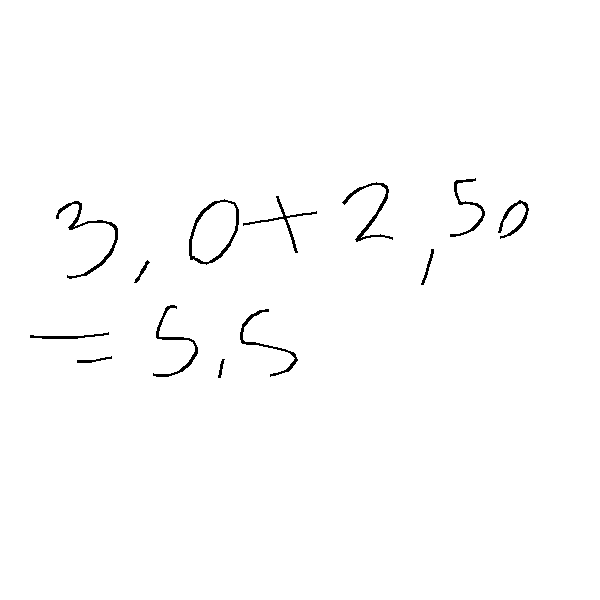 3,0+2,50
=5,5